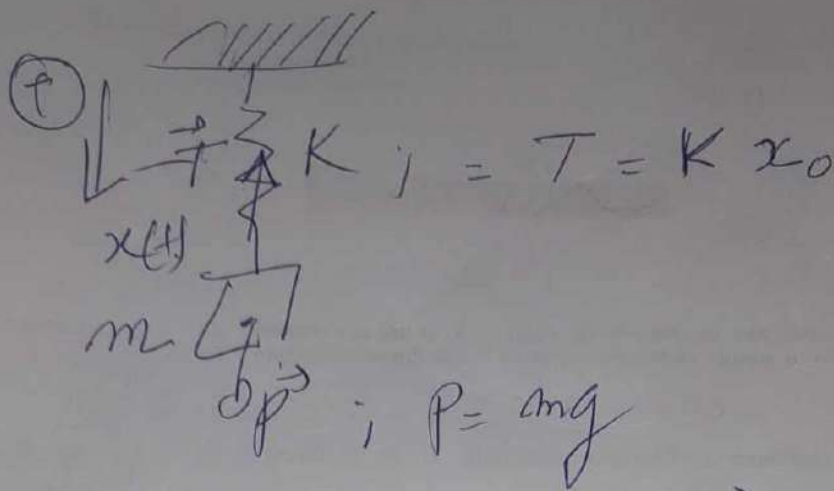 (+)
T⃗ K ; = T = K x₀
x(t)
m
P⃗ ; P = mg